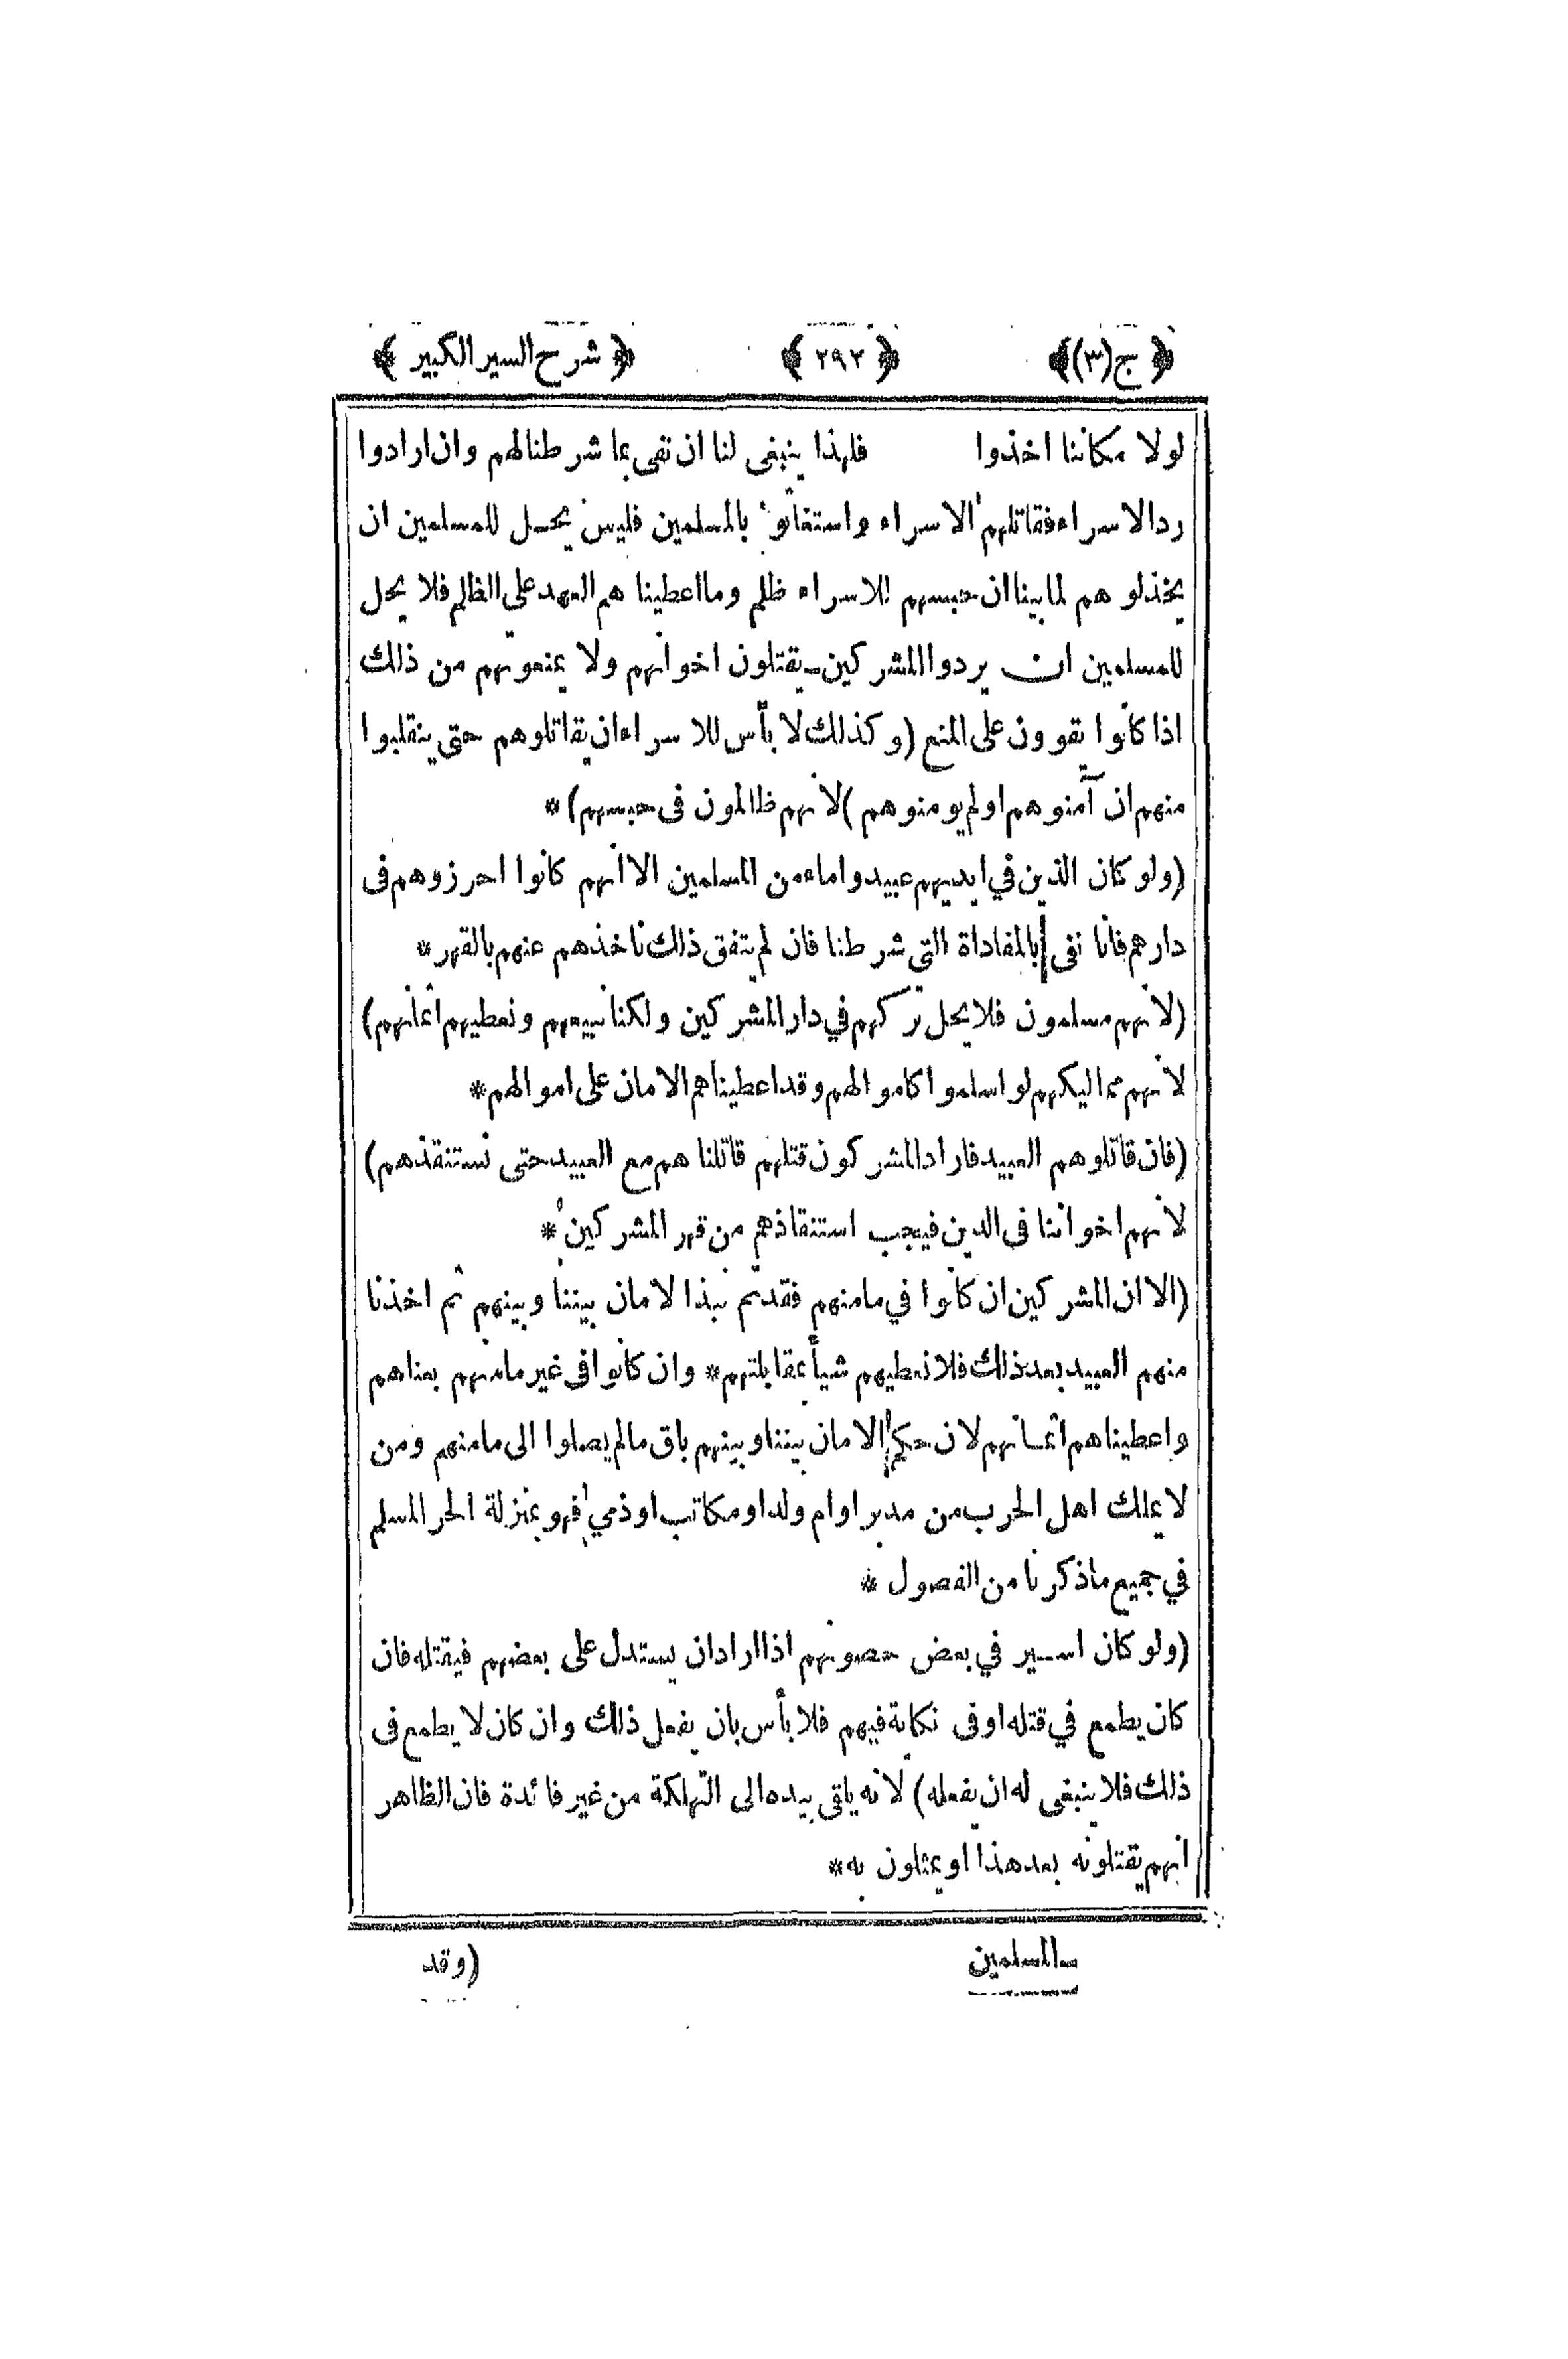 ﴿ ج (٣) ﴾ ﴿ ٢٩٢ ﴾ ﴿ شرح السير الكبير ﴾
لولا مكاننا اخذوا فلهذا ينبغى لنا ان نفى بما شرطنا لهم وان ارادوا
رد الاسراء فقاتلهم الاسراء واستغاثوا بالمسلمين فليس يحل للمسلمين ان
يخذلوهم لما بينا ان حبسهم للاسراء ظلم وما اعطيناهم العهد على الظلم فلا يحل
للمسلمين ان يردوا المشركين يقتلون اخوانهم ولا يمنعونهم من ذلك
اذا كانوا يقوون على المنع (وكذلك لا بأس للاسراء ان يقاتلوهم حتى ينقلبوا
منهم ان آمنوهم او لم يومنوهم) لانهم ظالمون فى حبسهم) *
(ولو كان الذين في ايديهم عبيدا واماء من المسلمين الا انهم كانوا احرزوهم فى
دارهم فانا نفى بالمفاداة التى شرطنا فان لم يتفق ذلك ناخذهم عنهم بالقهر *
(لانهم مسلمون فلا يحل تركهم في دار المشركين ولكنا نبيعهم ونعطيهم اثمانهم)
لانهم مماليكهم لو اسلموا كاموالهم وقد اعطيناهم الامان على اموالهم *
(فان قاتلوهم العبيد فاراد المشركون قتلهم قاتلناهم مع العبيد حتى نستنقذهم)
لانهم اخواننا فى الدين فيجب استنقاذهم من قهر المشركين *
(الا ان المشركين ان كانوا في مامنهم فقد تم نبذ الامان بيننا وبينهم ثم اخذنا
منهم العبيد بعد ذلك فلا نعطيهم شيأ بمقابلتهم * وان كانوا فى غير مامنهم بعناهم
واعطيناهم اثمانهم لان حكم الامان بيننا وبينهم باق مالم يصلوا الى مامنهم ومن
لا يملك اهل الحرب من مدبر او ام ولد او مكاتب او ذمي فهو بمنزلة الحر المسلم
في جميع ما ذكرنا من الفصول *
(ولو كان اسير في بعض حصونهم اذا اراد ان يستدل على بعضهم فيقتله فان
كان يطمع في قتله او فى نكاية فيهم فلا بأس بان يفعل ذلك وان كان لا يطمع فى
ذلك فلا ينبغى له ان يفعله) لانه يلقى بيده الى التهلكة من غير فائدة فان الظاهر
انهم يقتلونه بعد هذا او يمثلون به *
المسلمين (وقد